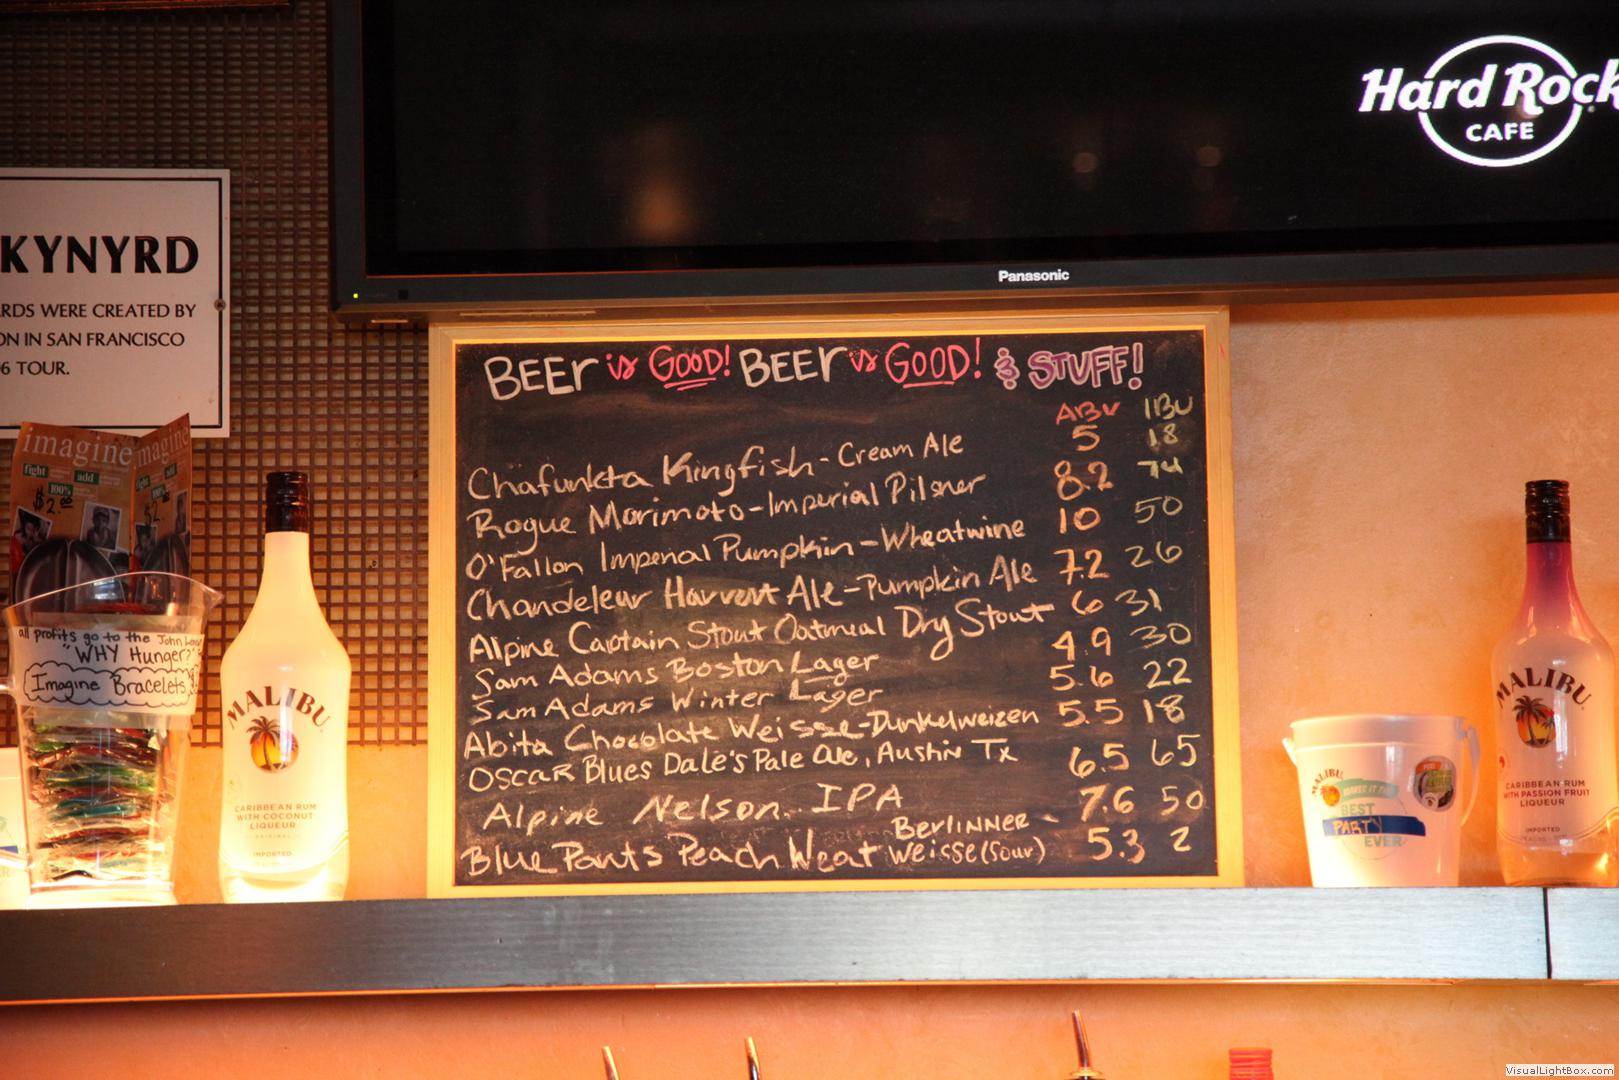 Hard Rock
CAFE
Panasonic
KYNYRD
RDS WERE CREATED BY
ON IN SAN FRANCISCO
6 TOUR.
BEEr is GOOD! BEEr is GOOD! & STUFF!
ABV IBU
Chafunkta Kingfish - Cream Ale 5 18
Rogue Morimoto - Imperial Pilsner 8.2 74
O'Fallon Imperial Pumpkin - Wheatwine 10 50
Chandeleur Harvest Ale - Pumpkin Ale 7.2 26
Alpine Captain Stout Oatmeal Dry Stout 6 31
Sam Adams Boston Lager 4.9 30
Sam Adams Winter Lager 5.6 22
Abita Chocolate Weisse - Dunkelweizen 5.5 18
OSCAR Blues Dale's Pale Ale, Austin Tx 6.5 65
Alpine Nelson. IPA 7.6 50
Blue Pants Peach Weat Berlinner - Weisse (Sour) 5.3 2
imagine
imagine
fight
add
100%
$2.00
all profits go to the John
"WHY Hunger?"
Imagine Bracelets
MALIBU
CARIBBEAN RUM
WITH COCONUT
LIQUEUR
ORIGINAL
IMPORTED
MALIBU
MAKES IT THE
BEST
PARTY
EVER
MALIBU
CARIBBEAN RUM
WITH PASSION FRUIT
LIQUEUR
IMPORTED
VisualLightBox.com